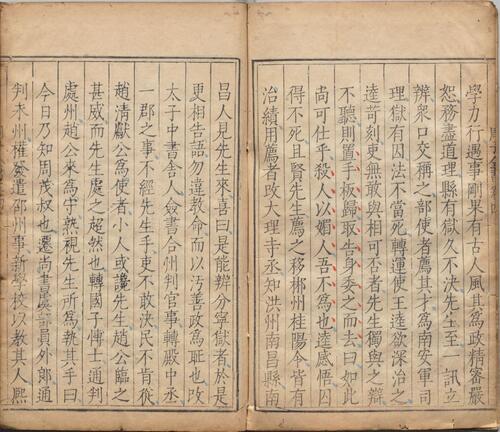 學力行遇事剛果有古人風其爲政精審嚴
恕務盡道理縣有獄久不決先生至一訊立
辨衆口交稱之部使者薦其才爲南安軍司
理獄有囚法不當死轉運使王逵欲深治之
逵苛刻吏無敢與相可否者先生獨與之辯
不聽則置手板歸取告身委之而去曰如此
尚可仕乎殺人以媚人吾不爲也逵感悟囚
得不死且賢先生薦之移郴州桂陽令皆有
治績用薦者改大理寺丞知洪州南昌縣南
昌人見先生來喜曰是能辨分寧獄者於是
更相告語勿違教命而以汚善政爲耻也改
太子中書舍人僉書合州判官事轉殿中丞
一郡之事不經先生手吏不敢決民不肯從
趙清獻公爲使者小人或讒先生趙公臨之
甚威而先生處之超然也轉國子博士通判
處州趙公來爲守熟視先生所爲執其手曰
今日乃知周茂叔也遷尚書虞部員外郎通
判永州權發遣邵州事新學校以教其人熈